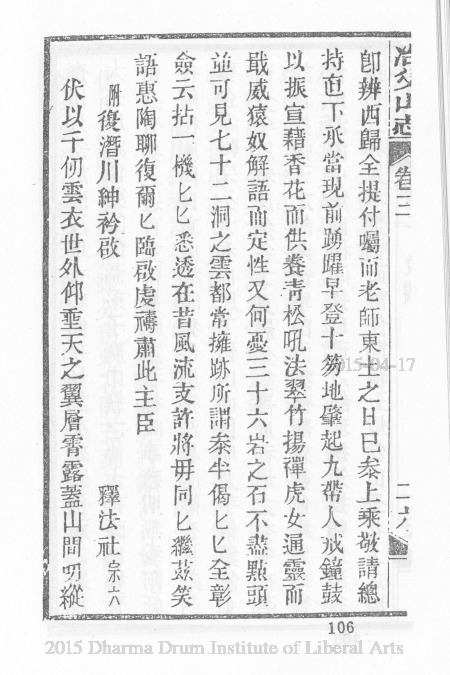 冶父山志 卷三 二六
卽辨西歸全提付囑而老師東土之日已叅上乘敬請總
持直下承當現前踴躍早登十笏地肇起九帶人戒鐘鼓
以振宣藉香花而供養靑松吼法翠竹揚禪虎女通靈而
戢威猿奴解語而定性又何憂三十六岩之石不盡點頭
並可見七十二洞之雲都常擁跡所謂叅半偈匕匕全彰
僉云拈一機匕匕悉透在昔風流支許將毋同匕繼茲笑
語惠陶聊復爾匕臨啟虔禱肅此主臣
附復潛川紳衿啟 釋法社宗六
伏以千仞雲衣世外仰垂天之翼層霄露蓋山間叨縱
106
2015-04-17
2015 Dharma Drum Institute of Liberal Arts